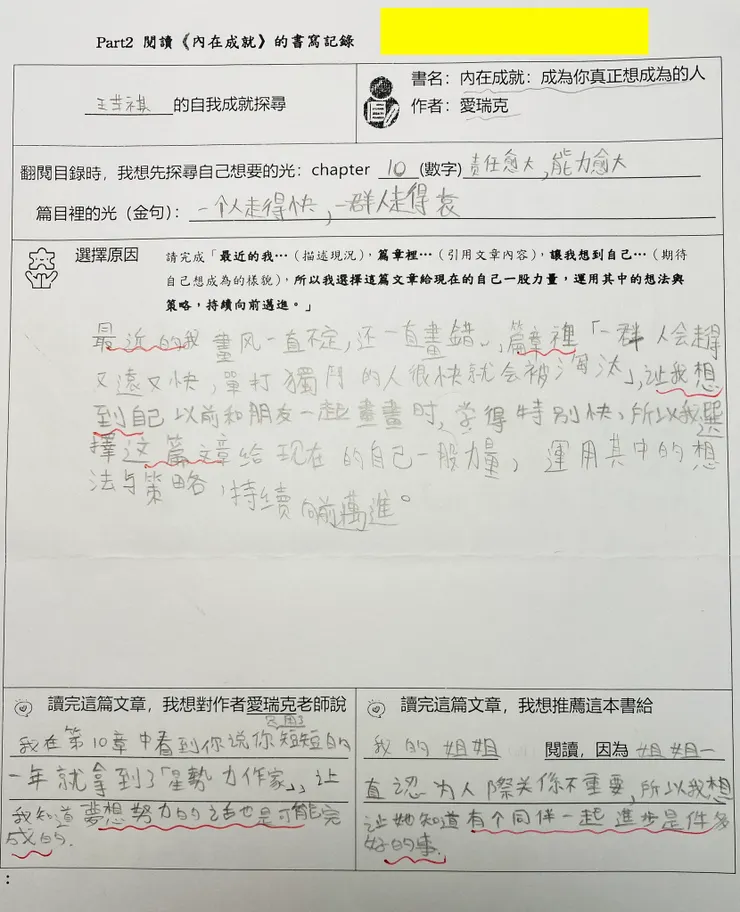 Part2 閱讀《內在成就》的書寫記錄
的自我成就探尋
書名：內在成就：成為你真正想成為的人
作者：愛瑞克
翻閱目錄時，我想先探尋自己想要的光：chapter 10 (數字) 責任愈大，能力愈大
篇目裡的光（金句）：一个人走得快，一群人走得
選擇原因
請完成「最近的我…（描述現況），篇章裡…（引用文章內容），讓我想到自己…（期待
自己想成為的樣貌），所以我選擇這篇文章給現在的自己一股力量，運用其中的想法與
策略，持續向前邁進。」
最近的我畫风一直不定，还一直畫錯，篇章裡「一群人会走得
又遠又快，單打獨鬥的人很快就会被淘汰」，让我想
到自己以前和朋友一起畫畫时，学得特別快，所以我選
擇这篇文章给现在的自己一股力量，運用其中的想
法与策略，持续向前萬進。
讀完這篇文章，我想對作者愛瑞克老師說
只用了
我在第10章中看到你说你短短的
一年就拿到了「星勢力作家」，让
我知道夢想努力的话也是可能完
成的.
讀完這篇文章，我想推薦這本書給
我的姐姐 閱讀，因為姐姐一
直認为人際关係不重要，所以我想
让她知道有个同伴一起進步是件多
好的事.
: